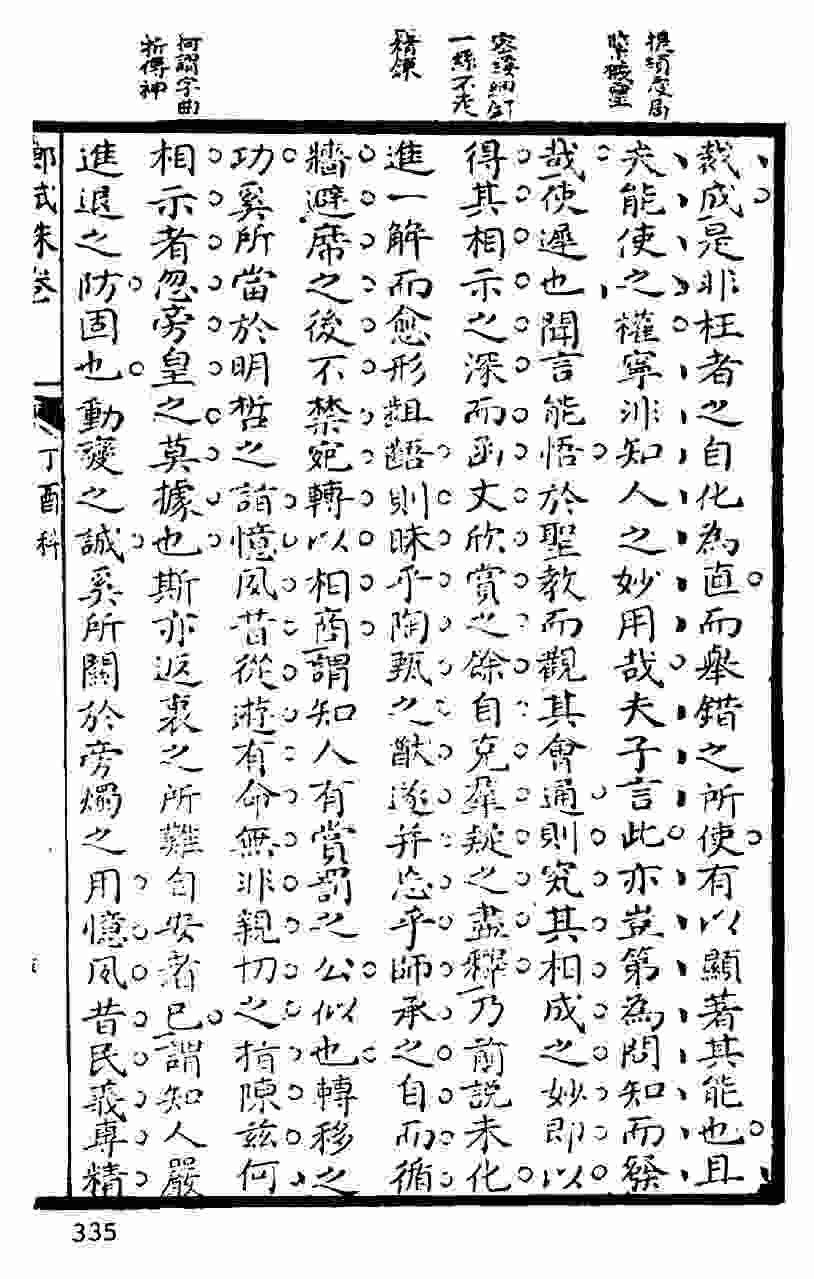 提頂及局
緊嚴靈
密緩細針
一絲不走
精鍊
何謂字曲
折傳神
裁成是非枉者之自化為直而舉錯之所使有以顯著其能也且
夫能使之權寧非知人之妙用哉夫子言此亦豈第為問知而發
哉使遲也聞言能悟於聖教而觀其會通則究其相成之妙即以
得其相示之深而函丈欣賞之餘自克羣疑之盡釋乃前說未化
進一解而愈形齟齬則昧乎陶甄之猷遂并忘乎師承之自而循
牆避席之後不禁宛轉以相商謂知人有賞罰之公似也轉移之
功奚所當於明哲之誼憶夙昔從遊有命無非親切之指陳茲何
相示者忽旁皇之莫據也斯亦返裏之所難自安者已謂知人嚴
進退之防固也動變之誠奚所關於旁燭之用憶夙昔民義專精
鄉試硃卷
丁酉科
335